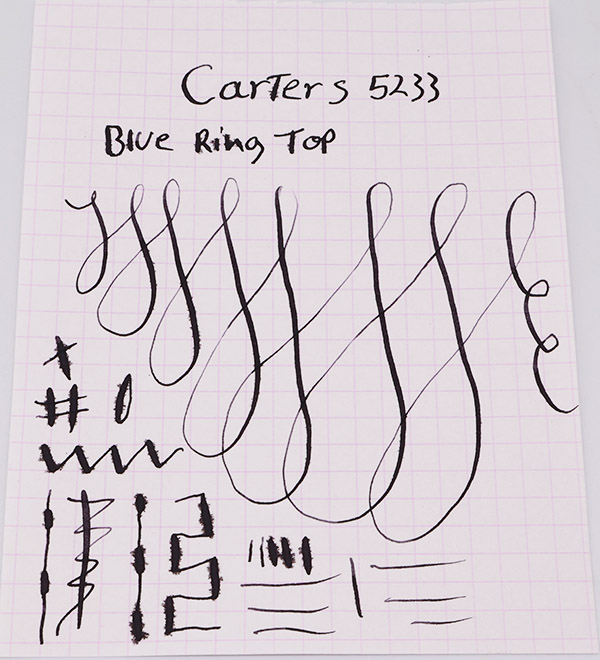 Carters 5233
Blue Ring Top